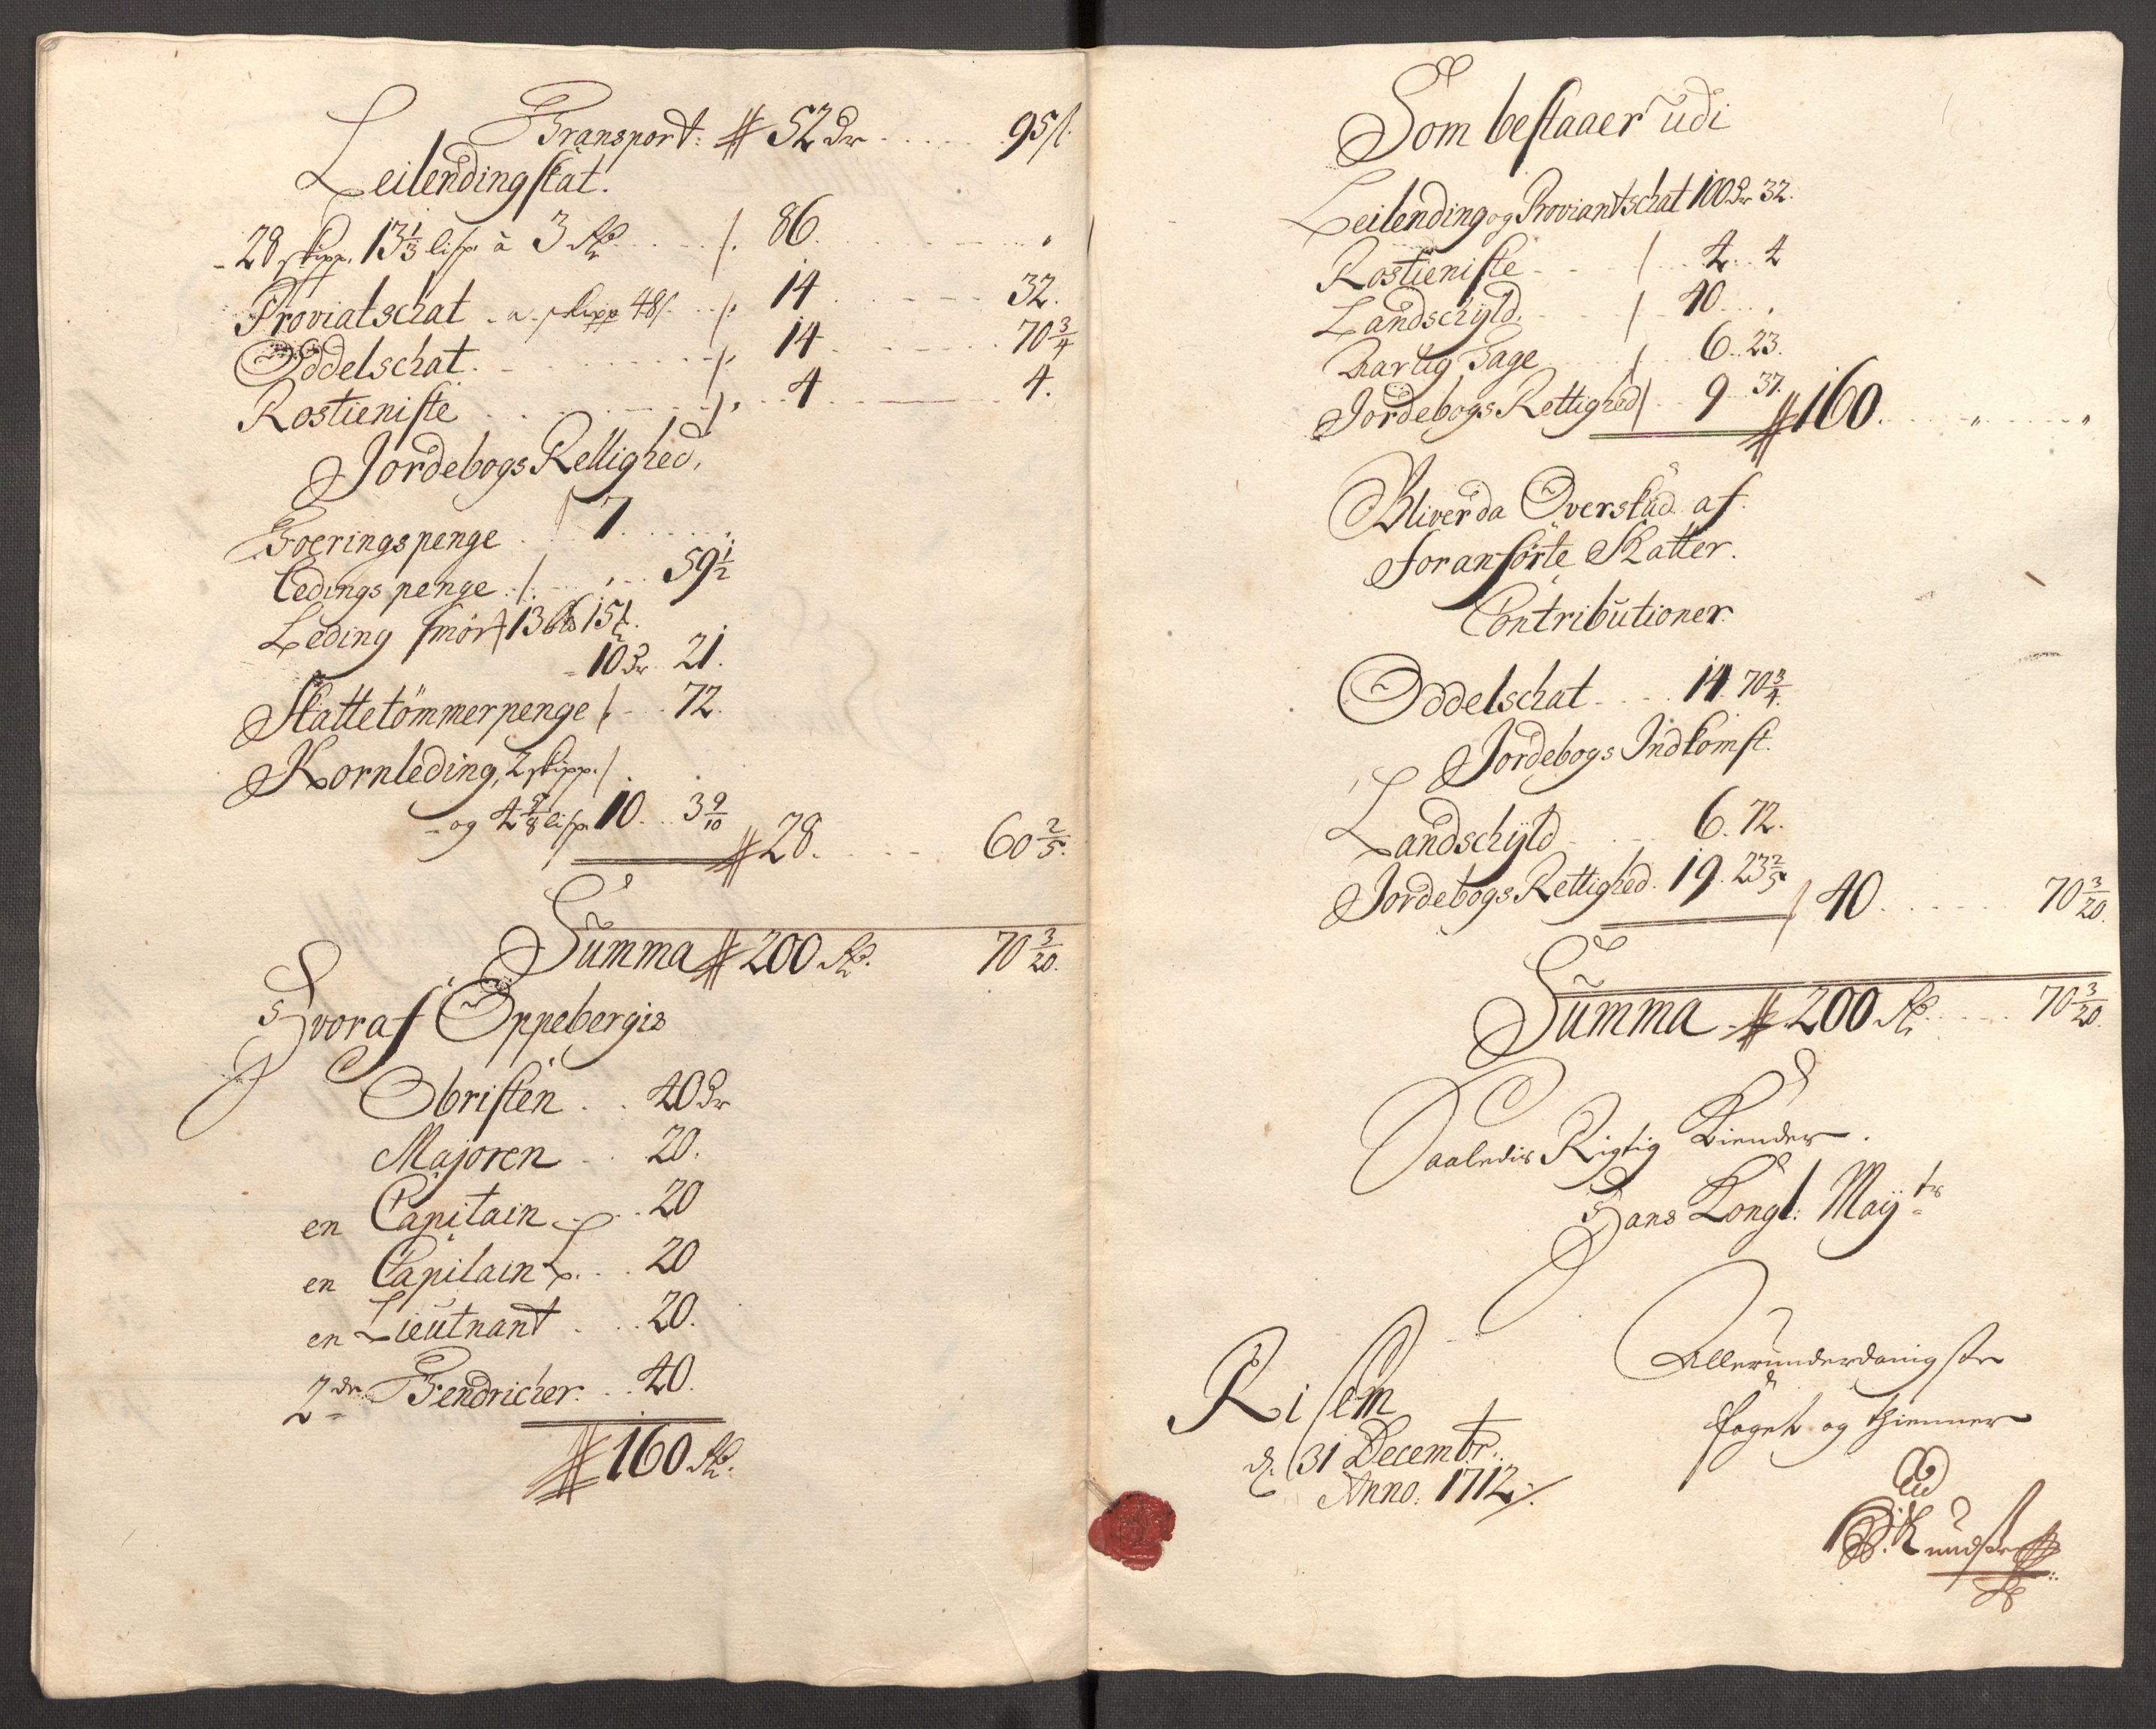 Transport: # 52 Dr ..... 95 s.
Leilending skat.
- 28 skipp. 13 1/3 lisp. à 3 Rd ..... /. 86. ..... "
Proviatschat - a skipp 48 s. .. /. 14 ..... 32.
Oddelschat. ..... /. 14 ..... 70 3/4
Rostieniste ..... /. 4 ..... 4.
Jordebogs Rettighed,
Foeringspenge . /. 7 ..... "
Ledingspenge . /. ..... 59 1/2
Leding smör / 13 15
- 10 Dr 21.
Skattetömmerpenge /. .. 72.
Kornleding, 2 skipp. /
- og 4 lisp. 10. .. 3 9/10
# 28. ..... 60 2/5.
Summa # 200 Rd. 70 3/20.
Hvoraf Oppebergis
Obristen .. 40 Dr
Majoren .. 20.
en Capitain .. 20
en Capitain L. .. 20
en Lieutnant .. 20.
2de Fendricher. .. 40.
# 160 Rd.
Som bestaaer udi
Leilending og Proviantschat 100 Dr 32.
Rostieniste - - / .. 4 .. 4
Landschyld. .. / .. 40 .. .
Aarlig Tage .. / 6 .. 23.
Jordebogs Rettighed / .. 9 .. 37. # 160. ..... " ..... "
Bliver da Overskud af
foranförte Skatter.
Contributioner.
Oddelschat .... 14. 70 3/4.
Jordebogs Indkomst.
Landschyld .. 6. 72.
Jordebogs Rettighed. 19. 23 2/5 / 40 ..... 70 3/20.
Summa - # 200 Rd ..... 70 3/20.
Saaledis Rigtig Kiender.
Hans Kongl: Mayts
Risem
Allerunderdanigste
d. 31 Decembr:
foget og thienner
Anno. 1712 /.
Knudsen